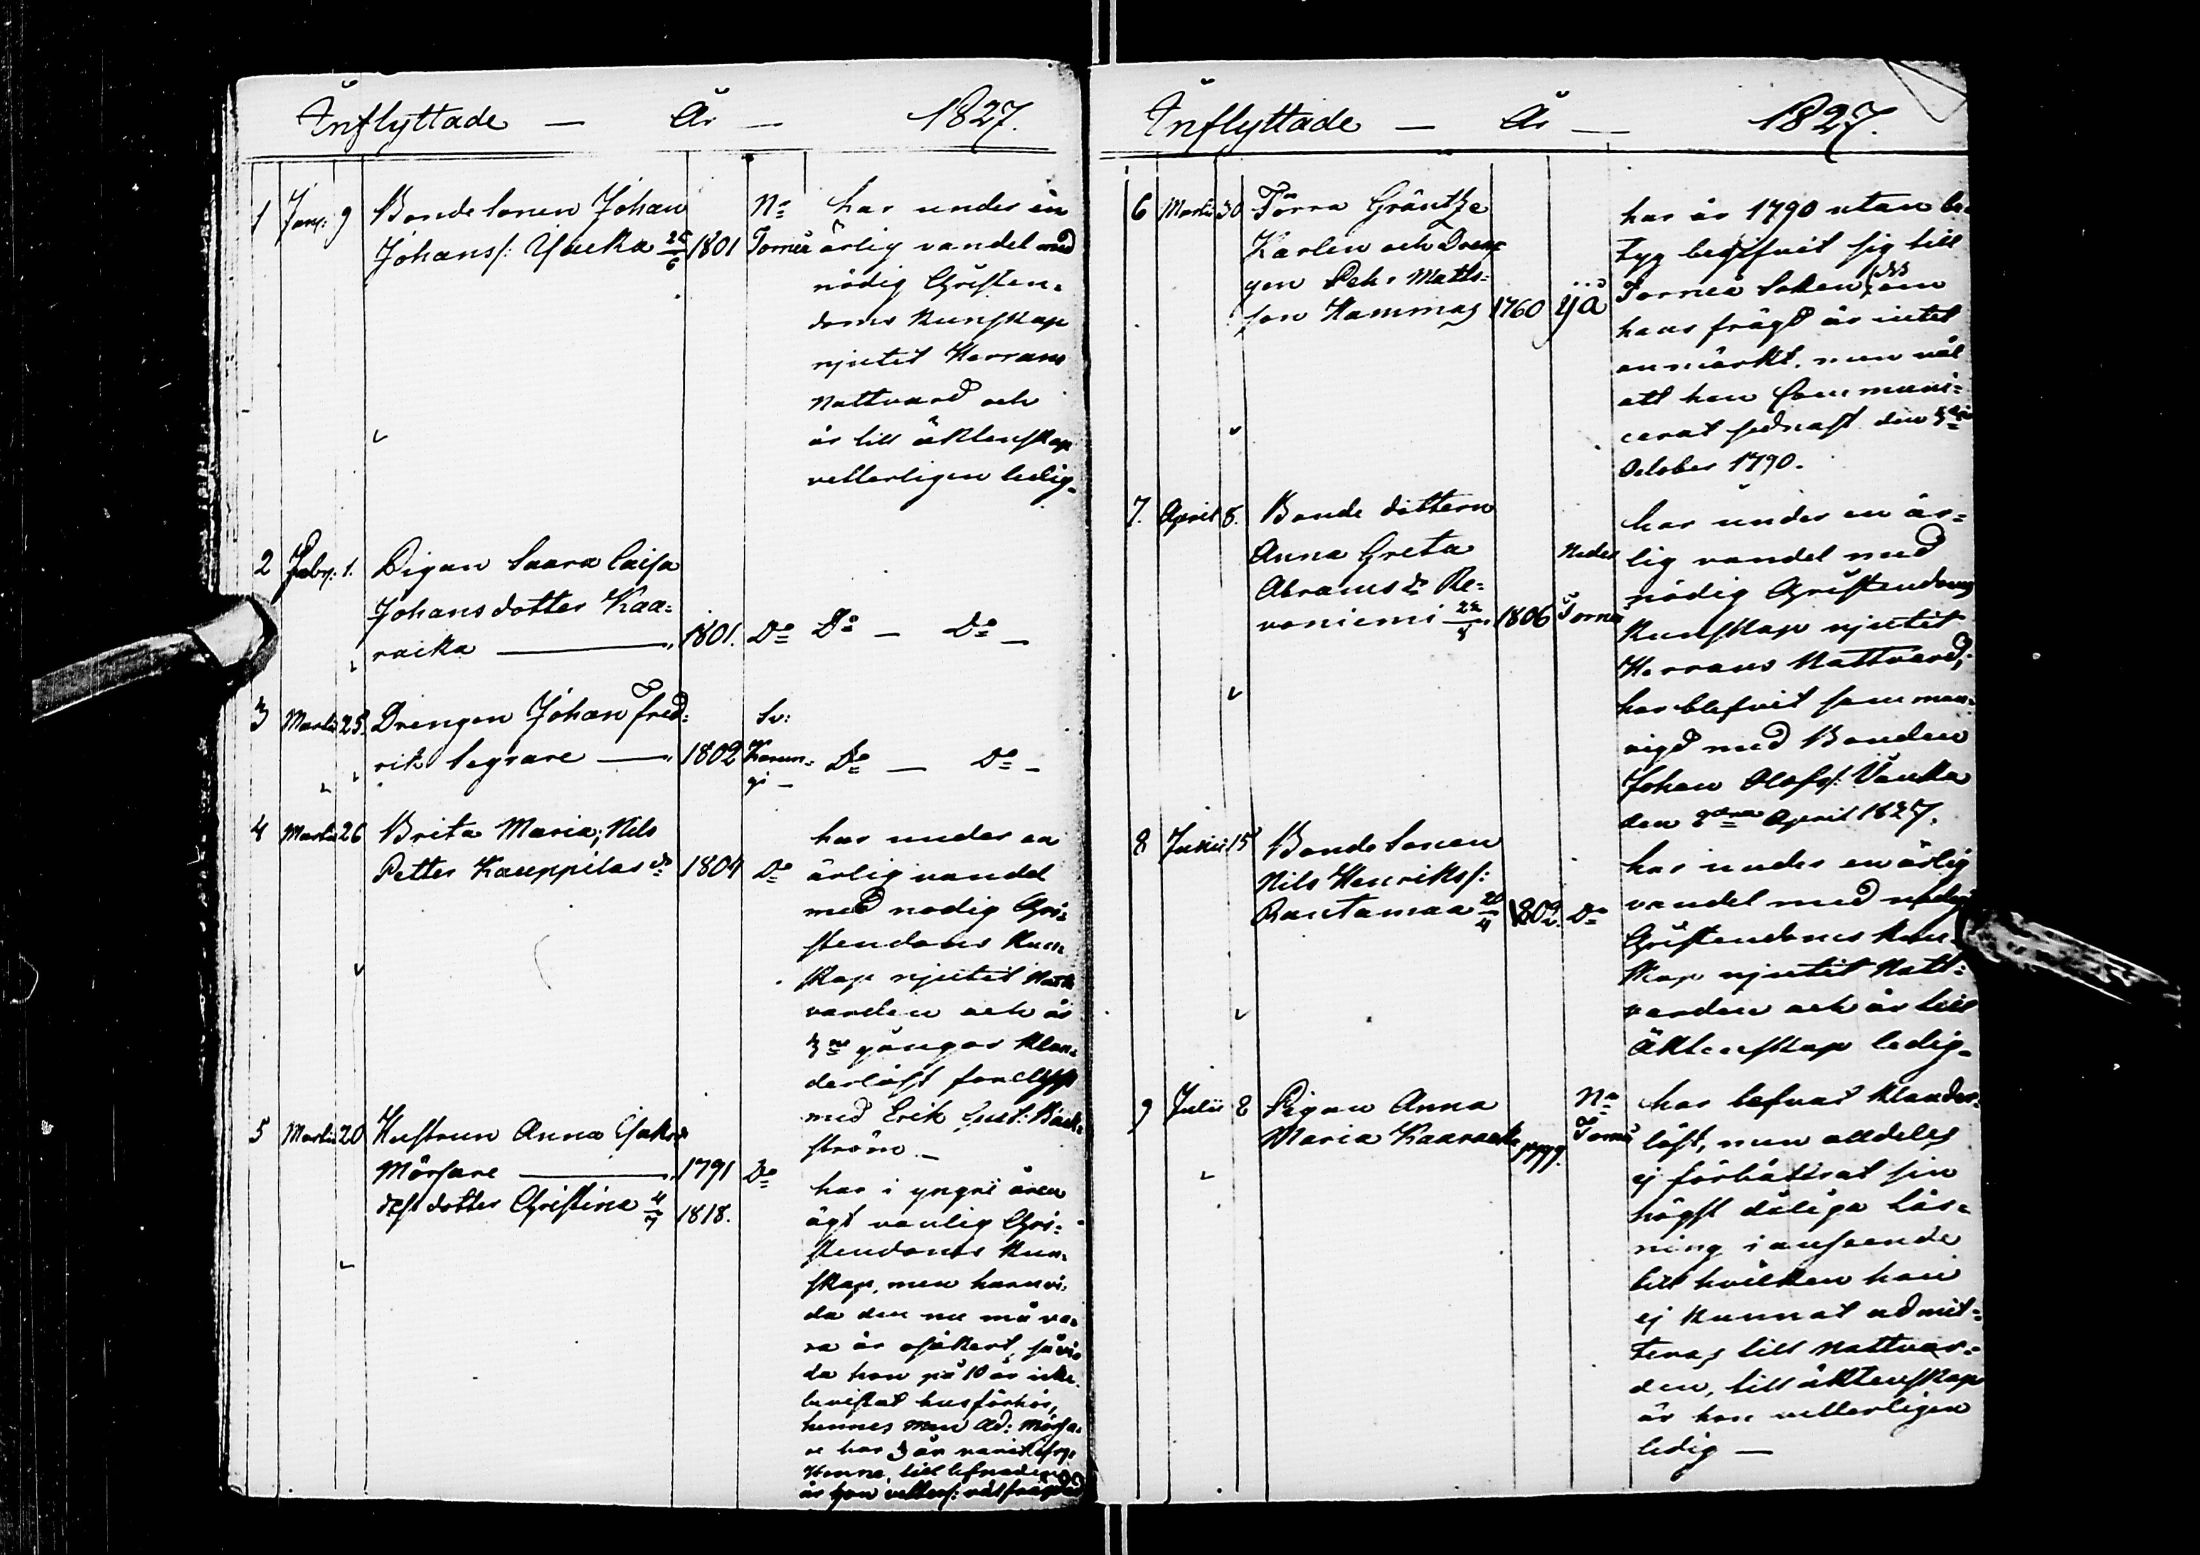 Inflyttade — År — 1827.
1 Jan: 9 Bonde Sonen Johan
Johanss: 26/6 1801
No Torneå
har under en
ärlig vandel med
nödig Christen-
doms Kunskap
njutit Herrans
Nattvard och
är till äktenskap
vetterligen ledig.
2 Febr: 1. Pigan Saara Caisa
Johansdotter Kaa-
racka — 1801. Do Do — Do —
3 Martii 25. Drengen Johan Fred-
rik Segrare — 1802
Sv:
Karun-
gi —
Do — Do —
4 Martii 26 Brita Maria, Nils
Petter Kauppilas dr 1804 Do
har under en
ärlig vandel
med nödig Chri-
stendoms Kun-
skap njutit Natt-
varden och är
3ne gånger klan-
derlöst
med Erik Gust: Bäck-
ström —
5 Martii 20 Hustrun Anna
Mörsare — 1791 Do
dess dotter Christina 4/7 1818.
har i yngre åren
ägt vanlig Chri-
stendoms Kun-
skap, men huruvi-
da den nu må va-
ra är osäkert, såvi-
da hon på 10 år icke
bevistat husförhör,
hennes man Ad: Mörsa-
re har 3 år varit
Henne, till lefnaden
är hon vetterl: välfrägdad
Inflyttade — År — 1827.
6 Martii 30 Förra Gräntze
Karlen och Dren-
gen Pehr Matts-
son Hammas 1760
har år 1790 utan be-
tyg begifvit sig till
Torneå Soken, om
hans frägd är intet
anmärkt, men väl
att han Communi-
cerat sednast den 3die
October 1790.
7. April 8. Bonde dottern
Anna Greta
Abrams dr Re-
voniemi 22/8 1806
Neder
Torneå
har under en är-
lig vandel med
nödig Christendoms
Kunskap njutit
Herrans Nattvard,
har blefvit samman-
vigd med Bonden
Johan Olofss:
den April 1827.
8 Junii 15 Bonde Sonen
Nils Henrikss:
Rautamaa 20/4 1802. Do
har under en ärlig
vandel med nödig
Christendoms Kun-
skap njutit Natt-
varden och är till
Äktenskap ledig.
9 Julii 8 Pigan Anna
Maria 1799.
No
Torneå
har lefvat klander-
löst, men alldeles
ej förbättrat sin
högst dåliga läs-
ning i anseende
till hvilken hon
ej kunnat admit-
teras till Nattvar-
den, till äktenskap
är hon vetterligen
ledig —